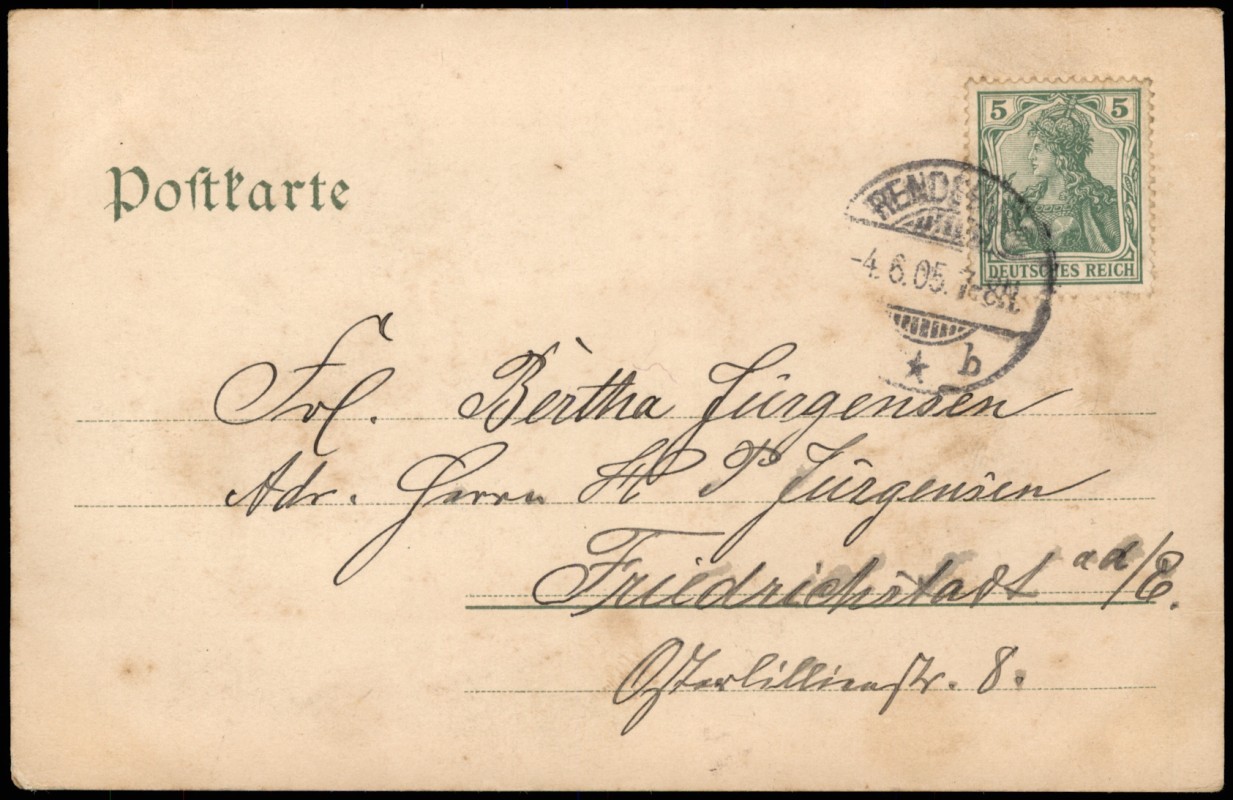 Postkarte
5 5
DEUTSCHES REICH
-4.6.05.
* b
Frl. Bertha Jürgensen
Adr. Herrn H P Jürgensen
Friedrichstadt a d/E.
Osterlillienstr. 8.